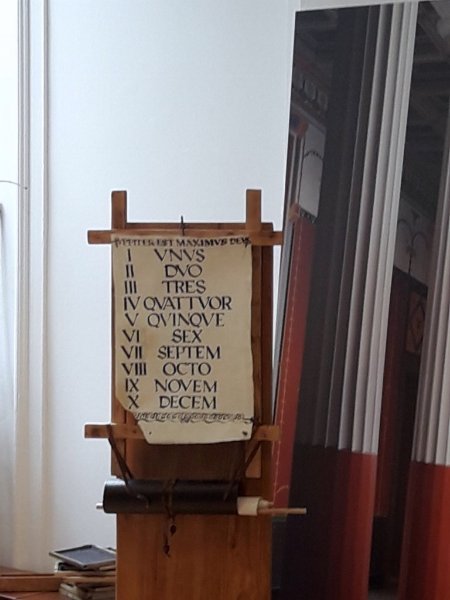 IVPPITER EST MAXIMVS DEVS
I VNVS
II DVO
III TRES
IV QVATTVOR
V QVINQVE
VI SEX
VII SEPTEM
VIII OCTO
IX NOVEM
X DECEM